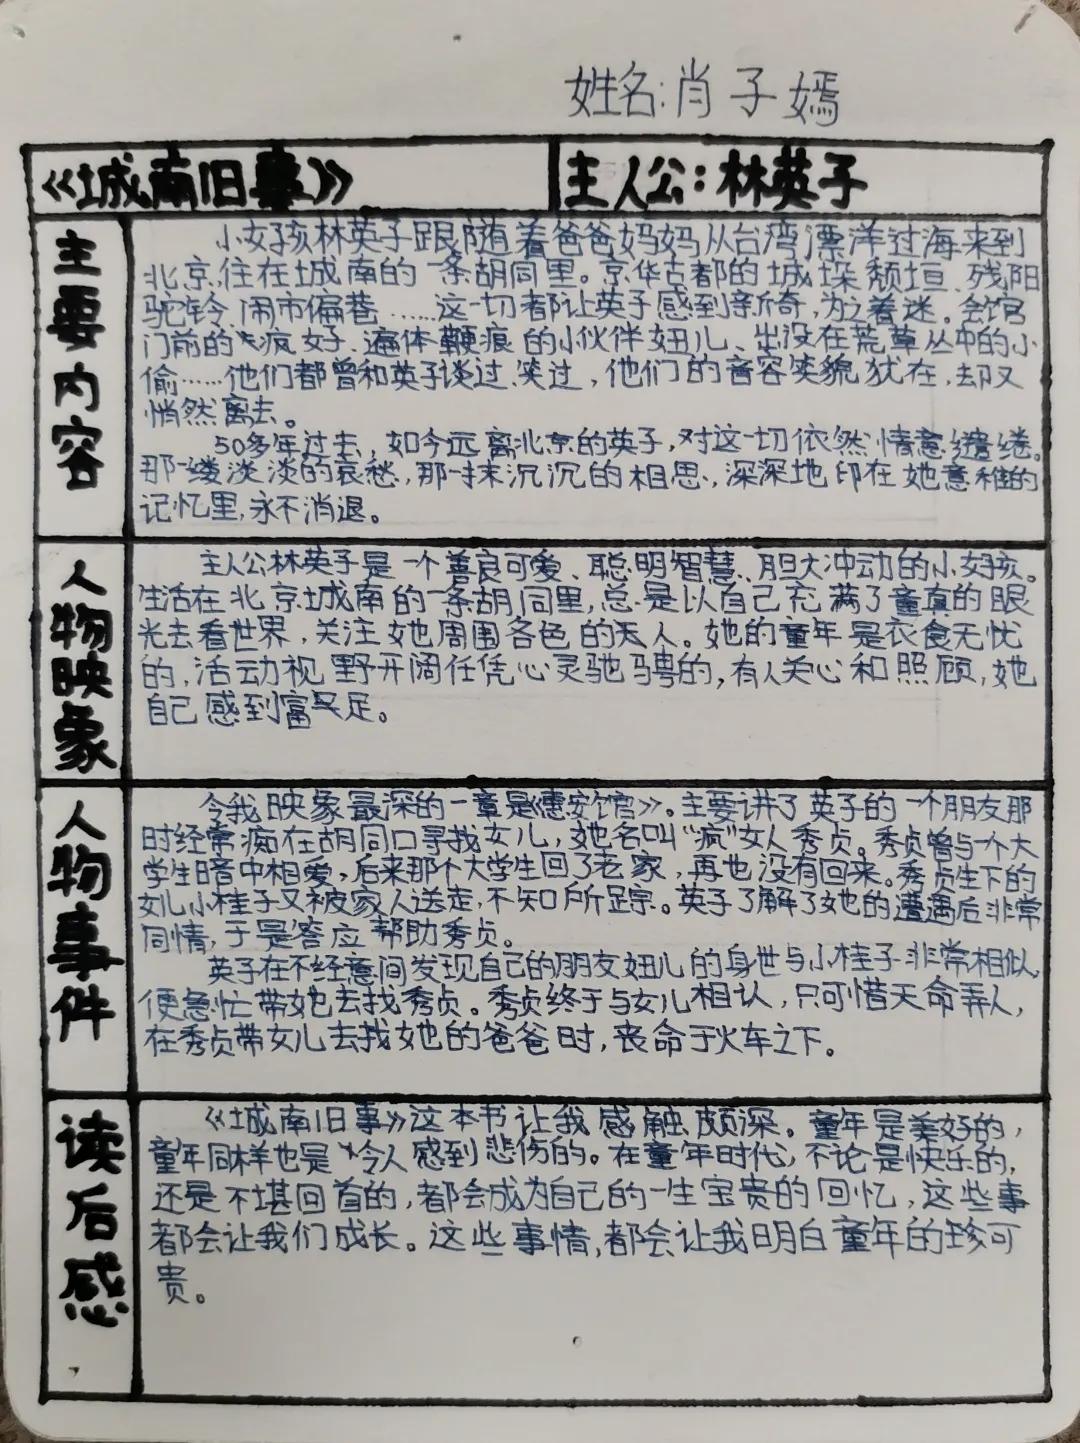 姓名:肖子嫣
《城南旧事》
主人公:林英子
主要内容
小女孩林英子跟随着爸爸妈妈从台湾漂洋过海来到
北京,住在城南的一条胡同里。京华古都的城垛颓垣、残阳
驼铃、闹市偏巷……这一切都让英子感到新奇,为之着迷。会馆
门前的疯女子、遍体鞭痕的小伙伴妞儿、出没在荒草丛中的小
偷……他们都曾和英子谈过、笑过,他们的音容笑貌犹在,却又
悄然离去。
50多年过去,如今远离北京的英子,对这一切依然情意缱绻。
那一缕淡淡的哀愁,那一抹沉沉的相思,深深地印在她意稚的
记忆里,永不消退。
人物映象
主人公林英子是一个善良可爱、聪明智慧、胆大冲动的小女孩。
生活在北京城南的一条胡同里,总是以自己充满了童真的眼
光去看世界,关注她周围各色的天人。她的童年是衣食无忧
的,活动视野开阔任凭心灵驰骋的,有人关心和照顾,她
自己感到富足。
人物事件
令我映象最深的一章是《惠安馆》。主要讲了英子的一个朋友那
时经常痴在胡同口寻找女儿,她名叫“疯”女人秀贞。秀贞曾与一个大
学生暗中相爱,后来那个大学生回了老家,再也没有回来。秀贞生下的
女儿小桂子又被家人送走,不知所踪。英子了解了她的遭遇后非常
同情,于是答应帮助秀贞。
英子在不经意间发现自己的朋友妞儿的身世与小桂子非常相似,
便急忙带她去找秀贞。秀贞终于与女儿相认,只可惜天命弄人,
在秀贞带女儿去找她的爸爸时,丧命于火车之下。
读后感
《城南旧事》这本书让我感触颇深。童年是美好的,
童年同样也是令人感到悲伤的。在童年时代,不论是快乐的,
还是不堪回首的,都会成为自己的一生宝贵的回忆,这些事
都会让我们成长。这些事情,都会让我明白童年的珍可
贵。